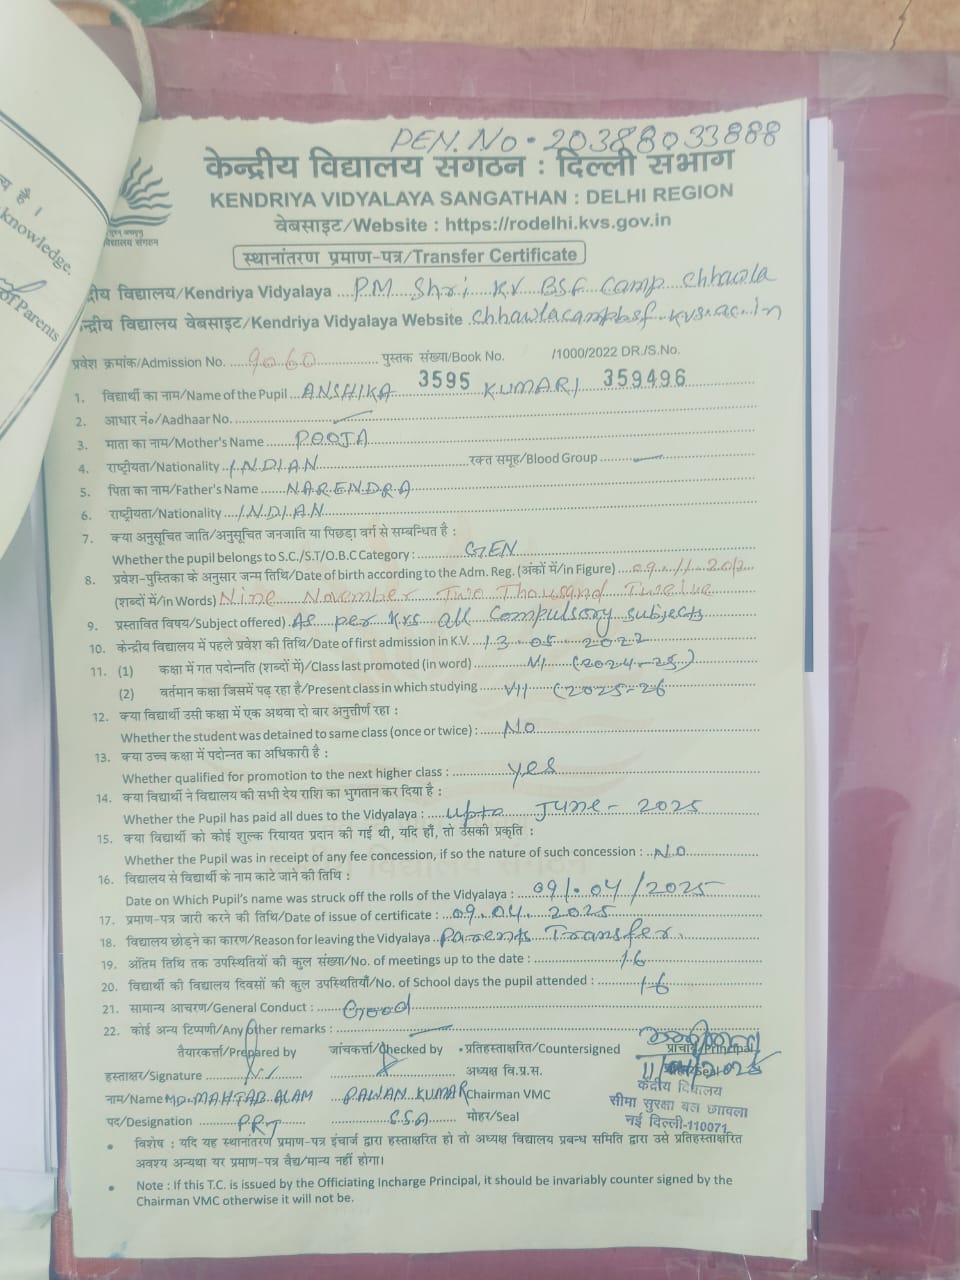 य है ।
knowledge.
of Parents
PEN.No - 20388033888
केन्द्रीय विद्यालय संगठन : दिल्ली संभाग
KENDRIYA VIDYALAYA SANGATHAN : DELHI REGION
वेबसाइट/Website : https://rodelhi.kvs.gov.in
स्थानांतरण प्रमाण-पत्र/Transfer Certificate
विद्यालय/Kendriya Vidyalaya P.M Shri KV BSF Camp Chhawla
विद्यालय वेबसाइट/Kendriya Vidyalaya Website Chhawlacampbsf.kvs.ac.in
प्रवेश क्रमांक/Admission No. 9060 पुस्तक संख्या/Book No. /1000/2022 DR./S.No.
3595 359496
1. विद्यार्थी का नाम/Name of the Pupil ANSHIKA KUMARI
2. आधार नं०/Aadhaar No.
3. माता का नाम/Mother's Name POOJA
4. राष्ट्रीयता/Nationality INDIAN रक्त समूह/Blood Group
5. पिता का नाम/Father's Name NARENDRA
6. राष्ट्रीयता/Nationality INDIAN
7. क्या अनुसूचित जाति/अनुसूचित जनजाति या पिछड़ा वर्ग से सम्बन्धित है :
Whether the pupil belongs to S.C./S.T/O.B.C Category : GEN
8. प्रवेश-पुस्तिका के अनुसार जन्म तिथि/Date of birth according to the Adm. Reg. (अंकों में/in Figure) 09.11.2012
(शब्दों में/in Words) Nine November Two Thousand Twelve
9. प्रस्तावित विषय/Subject offered) As per KVS all Compulsory subjects
10. केन्द्रीय विद्यालय में पहले प्रवेश की तिथि/Date of first admission in K.V. 13.05.2022
11. (1) कक्षा में गत पदोन्नति (शब्दों में)/Class last promoted (in word) VI (2024-25)
(2) वर्तमान कक्षा जिसमें पढ़ रहा है/Present class in which studying VII (2025-26
12. क्या विद्यार्थी उसी कक्षा में एक अथवा दो बार अनुत्तीर्ण रहा :
Whether the student was detained to same class (once or twice) : No
13. क्या उच्च कक्षा में पदोन्नत का अधिकारी है :
Whether qualified for promotion to the next higher class : yes
14. क्या विद्यार्थी ने विद्यालय की सभी देय राशि का भुगतान कर दिया है :
Whether the Pupil has paid all dues to the Vidyalaya : upto June - 2025
15. क्या विद्यार्थी को कोई शुल्क रियायत प्रदान की गई थी, यदि हाँ, तो उसकी प्रकृति :
Whether the Pupil was in receipt of any fee concession, if so the nature of such concession : NO
16. विद्यालय से विद्यार्थी के नाम काटे जाने की तिथि :
Date on Which Pupil's name was struck off the rolls of the Vidyalaya : 09/04/2025
17. प्रमाण-पत्र जारी करने की तिथि/Date of issue of certificate : 09.04.2025
18. विद्यालय छोड़ने का कारण/Reason for leaving the Vidyalaya Parents Transfer.
19. अंतिम तिथि तक उपस्थितियों की कुल संख्या/No. of meetings up to the date : 16
20. विद्यार्थी की विद्यालय दिवसों की कुल उपस्थितियाँ/No. of School days the pupil attended : 16
21. सामान्य आचरण/General Conduct : Good
22. कोई अन्य टिप्पणी/Any other remarks :
तैयारकर्ता/Prepared by जांचकर्ता/Checked by प्रतिहस्ताक्षरित/Countersigned प्राचार्य/Principal
हस्ताक्षर/Signature अध्यक्ष वि.प्र.स.
नाम/Name MD. MAHTAB ALAM PAWAN KUMAR Chairman VMC
पद/Designation PRT SSA मोहर/Seal
केंद्रीय विद्यालय
सीमा सुरक्षा बल छावला
नई दिल्ली-110071
• विशेष : यदि यह स्थानांतरण प्रमाण-पत्र इंचार्ज द्वारा हस्ताक्षरित हो तो अध्यक्ष विद्यालय प्रबन्ध समिति द्वारा उसे प्रतिहस्ताक्षरित
अवश्य अन्यथा यर प्रमाण-पत्र वैद्य/मान्य नहीं होगा।
• Note : If this T.C. is issued by the Officiating Incharge Principal, it should be invariably counter signed by the
Chairman VMC otherwise it will not be.